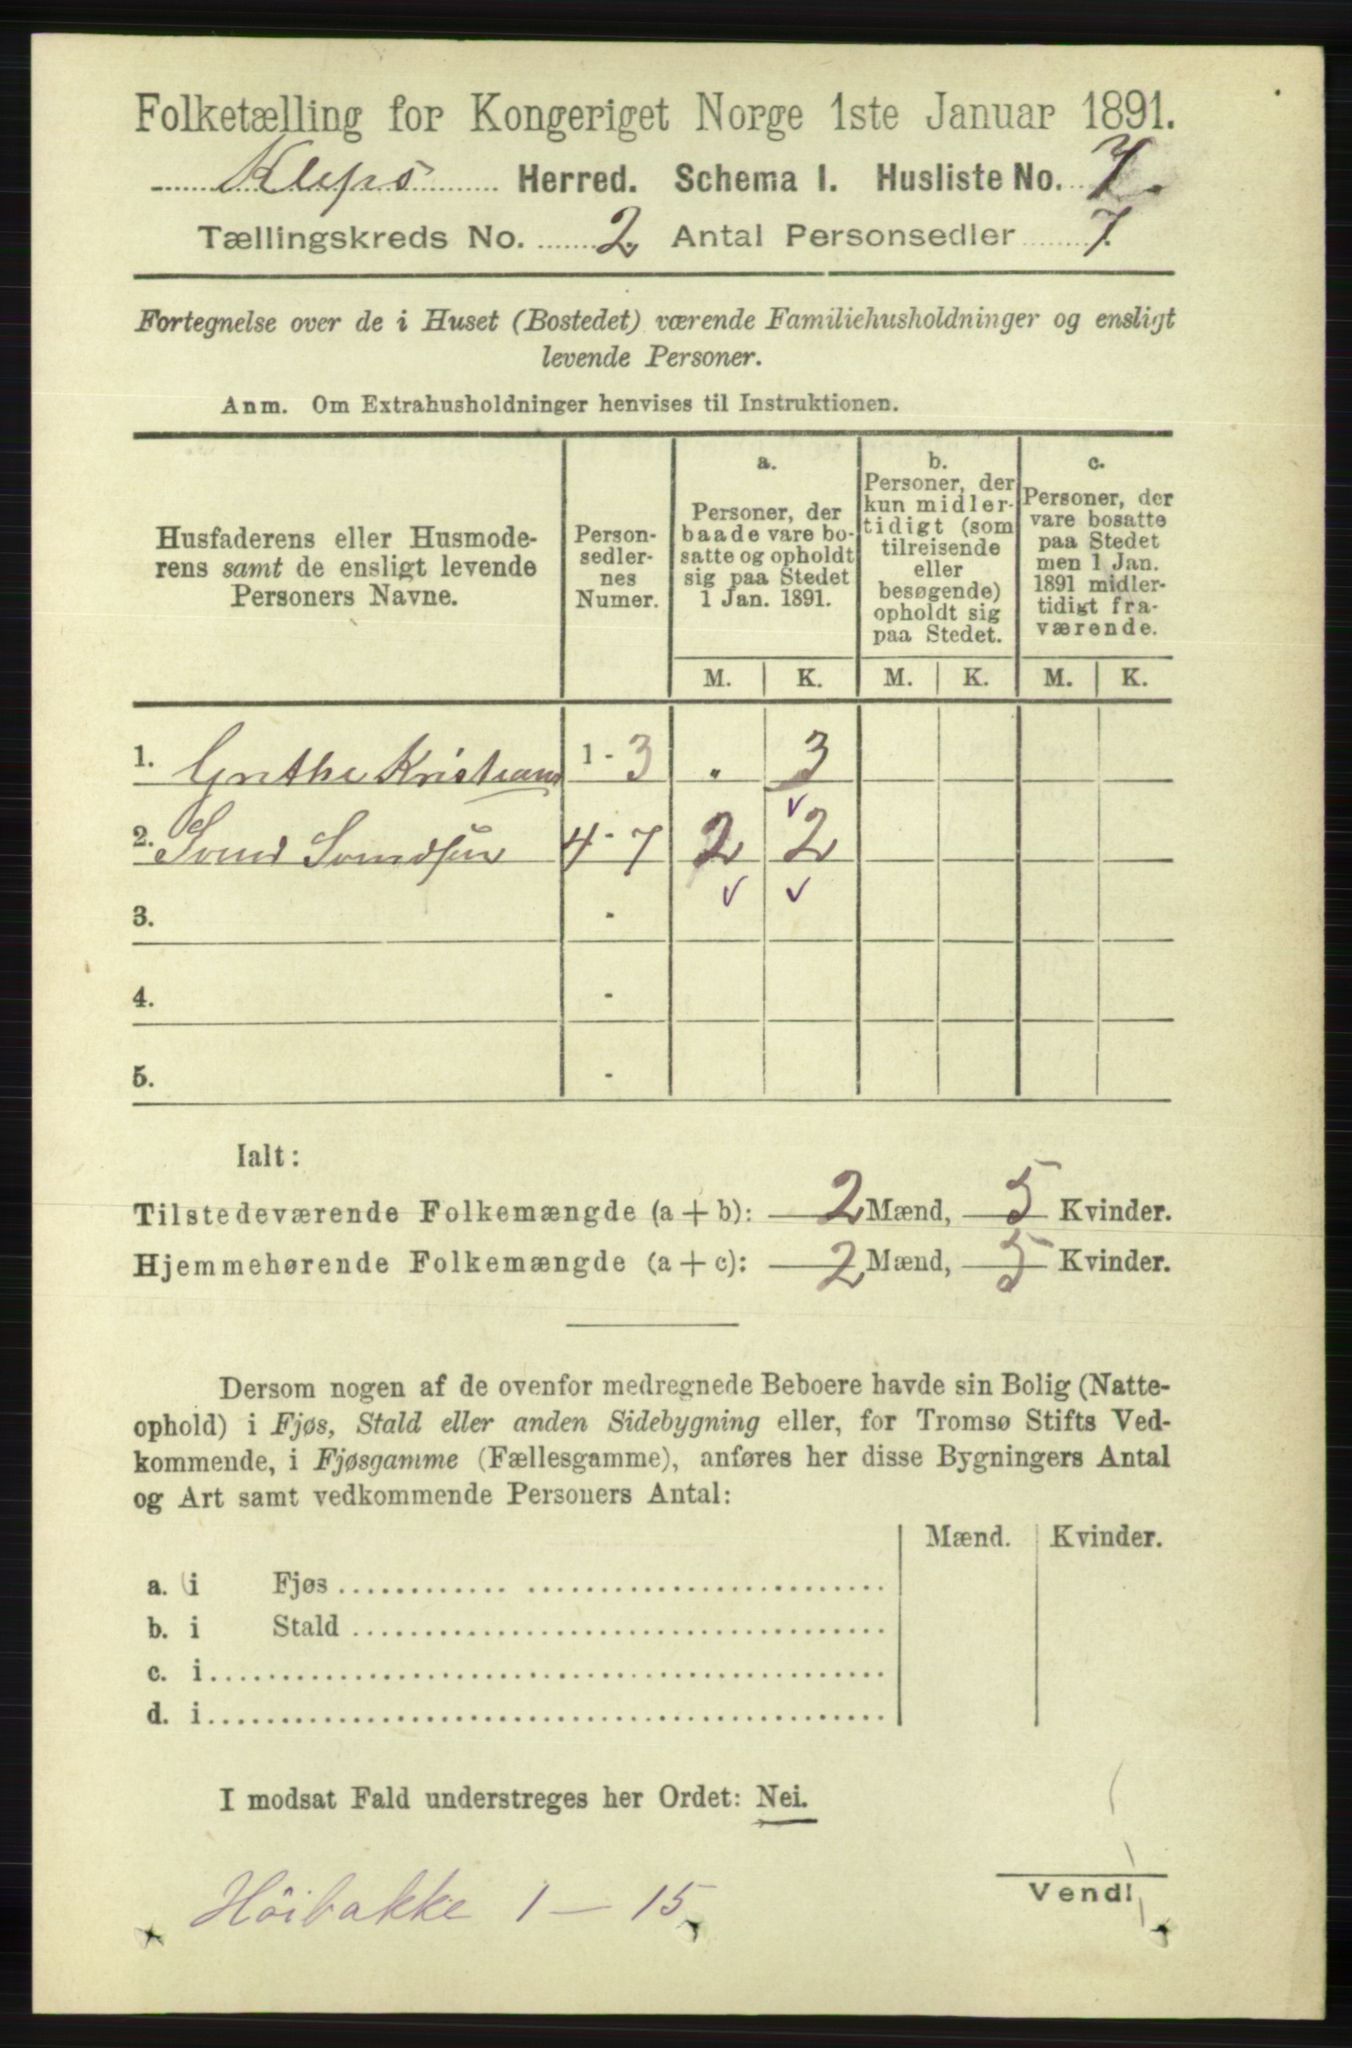 Folketælling for Kongeriget Norge 1ste Januar 1891.
Kleps Herred. Schema I. Husliste No. 7.
Tællingskreds No. 2. Antal Personsedler 7.
Fortegnelse over de i Huset (Bostedet) værende Familiehusholdninger og ensligt
levende Personer.
Anm. Om Extrahusholdninger henvises til Instruktionen.
Husfaderens eller Husmode-
rens samt de ensligt levende
Personers Navne.
Person-
sedler-
nes
Numer.
a.
Personer, der
baade vare bo-
satte og opholdt
sig paa Stedet
1 Jan. 1891.
b.
Personer, der
kun midler-
tidigt (som
tilreisende
eller
besøgende)
opholdt sig
paa Stedet.
c.
Personer, der
vare bosatte
paa Stedet
men 1 Jan.
1891 midler-
tidigt fra-
værende.
M. K. M. K. M. K.
1. Grethe Kristians 1 - 3 . 3
2. Svend Svendsen 4 - 7 2 2
3. -
4. -
5. -
Ialt:
Tilstedeværende Folkemængde (a + b): 2 Mænd, 5 Kvinder.
Hjemmehørende Folkemængde (a + c): 2 Mænd, 5 Kvinder.
Dersom nogen af de ovenfor medregnede Beboere havde sin Bolig (Natte-
ophold) i Fjøs, Stald eller anden Sidebygning eller, for Tromsø Stifts Ved-
kommende, i Fjøsgamme (Fællesgamme), anføres her disse Bygningers Antal
og Art samt vedkommende Personers Antal:
Mænd. Kvinder.
a. i Fjøs
b. i Stald
c. i
d. i
I modsat Fald understreges her Ordet: Nei.
Vend!
Höibakke 1 - 15